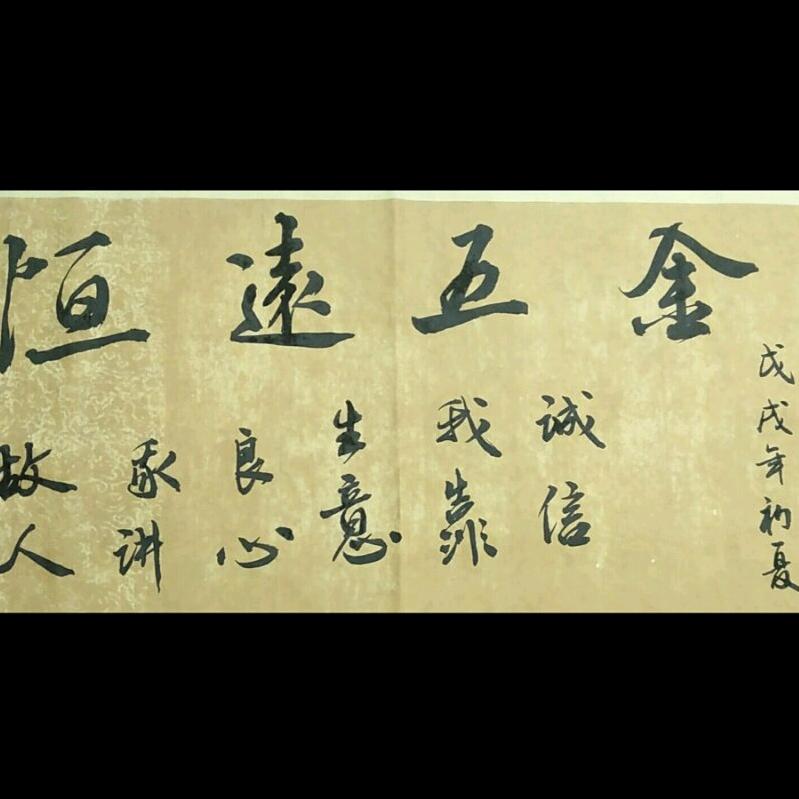 恒遠五金
做人
我讲
良心
生意
我靠
诚信
戊戌年初夏